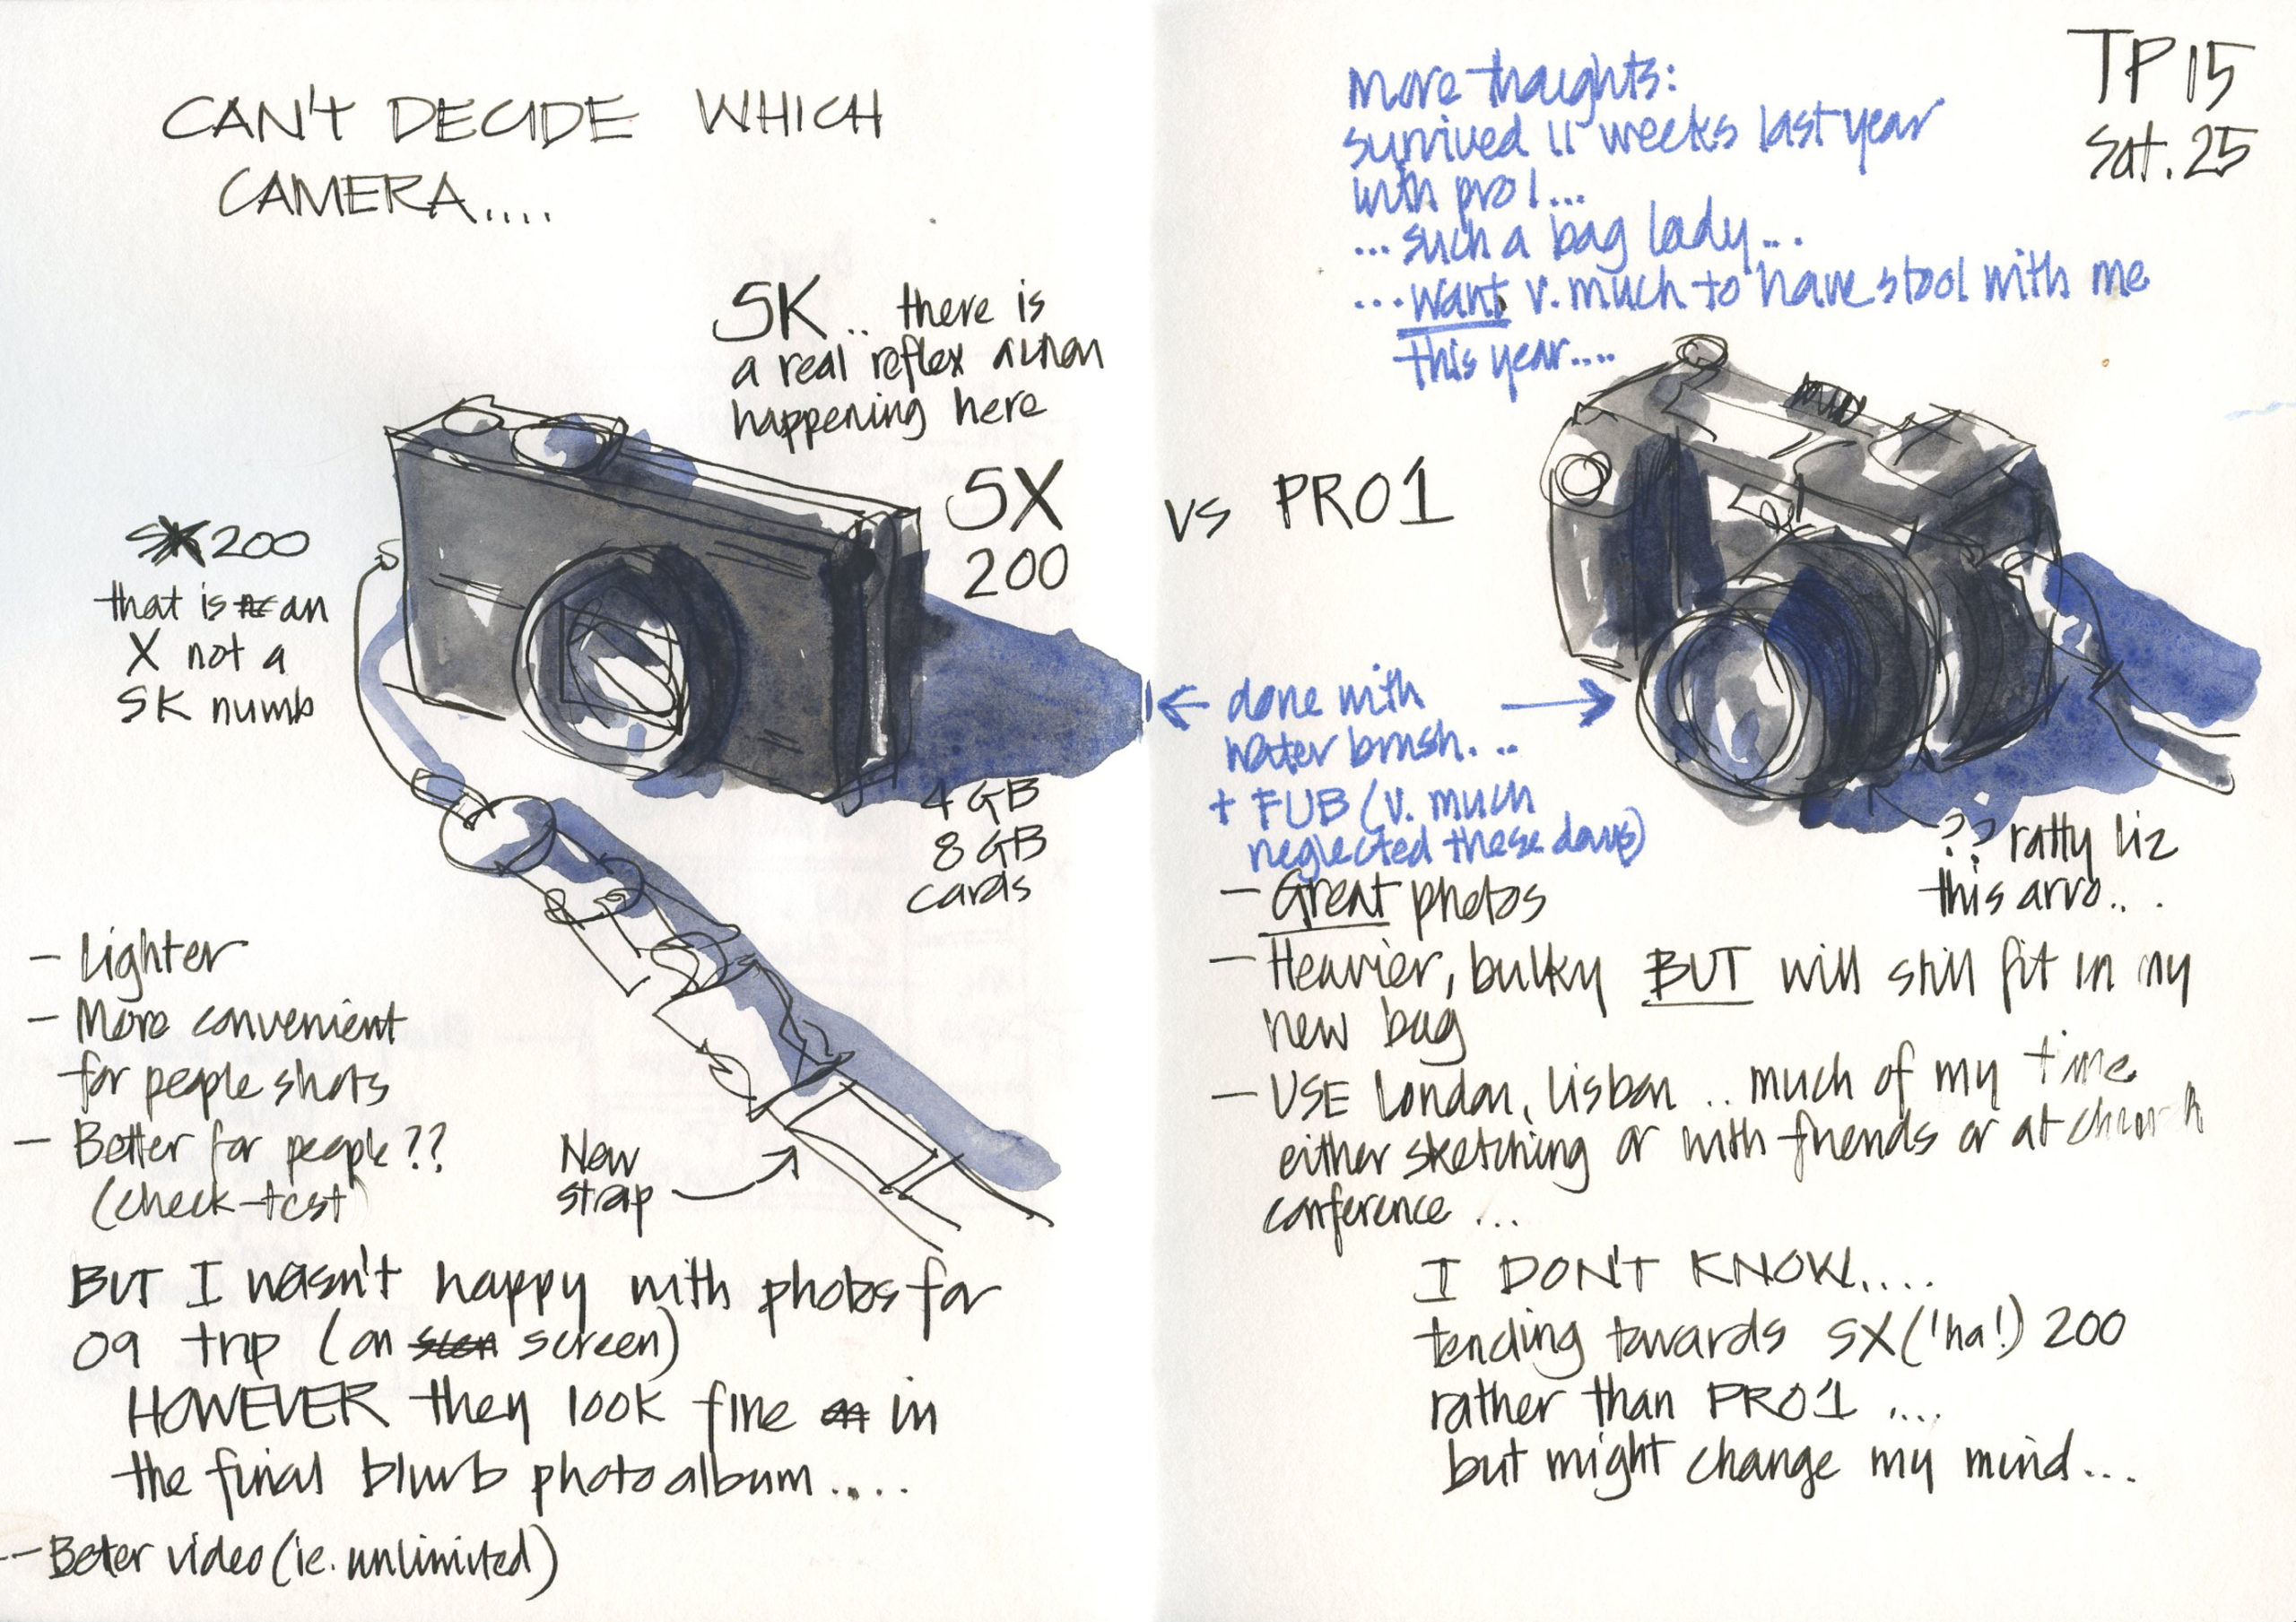 CAN'T DECIDE WHICH
CAMERA....
SK.. there is
a real reflex action
happening here
SX
200
SX 200
that is an
X not a
SK numb
4 GB
8 GB
cards
- Lighter
- More convenient
for people shots
- Better for people??
(check-test
New
strap
BUT I wasn't happy with photos for
09 trip (on screen)
HOWEVER they look fine in
the final blurb photo album....
- Beter video (ie. unlimited)
TP15
Sat. 25
more thoughts:
survived 11 weeks last year
with pro1...
...such a bag lady...
...want v. much to have stool with me
this year....
vs PRO1
done with
water brush...
+ FUB (v. much
neglected these days)
?? ratty liz
this arvo...
- Great photos
- Heavier, bulky BUT will still fit in my
new bag
- USE London, Lisbon .. much of my time
either sketching or with friends or at church
conference ...
I DON'T KNOW....
tending towards SX ('ha!) 200
rather than PRO1 ....
but might change my mind...